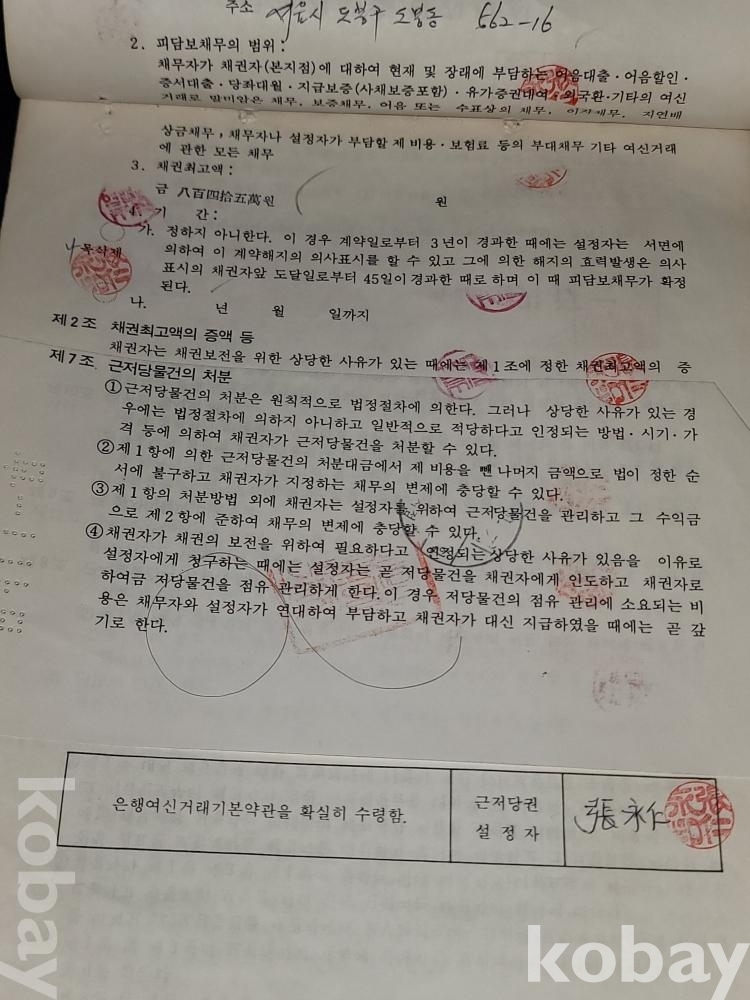 주소 서울시 도봉구 도봉동 562-16
2. 피담보채무의 범위:
채무자가 채권자(본지점)에 대하여 현재 및 장래에 부담하는 어음대출·어음할인·
증서대출·당좌대월·지급보증(사채보증포함)·유가증권대여·외국환·기타의 여신
거래로 말미암은 채무, 보증채무, 어음 또는 수표상의 채무, 이자채무, 지연배
상금채무, 채무자나 설정자가 부담할 제 비용·보험료 등의 부대채무 기타 여신거래
에 관한 모든 채무
3. 채권최고액:
금 八百四拾五萬원 원
4. 기 간:
가. 정하지 아니한다. 이 경우 계약일로부터 3년이 경과한 때에는 설정자는 서면에
나 목삭제 의하여 이 계약해지의 의사표시를 할 수 있고 그에 의한 해지의 효력발생은 의사
표시의 채권자앞 도달일로부터 45일이 경과한 때로 하며 이 때 피담보채무가 확정
된다.
나. 년 월 일까지
제2조 채권최고액의 증액 등
채권자는 채권보전을 위한 상당한 사유가 있는 때에는 제1조에 정한 채권최고액의 증
제7조. 근저당물건의 처분
①근저당물건의 처분은 원칙적으로 법정절차에 의한다. 그러나 상당한 사유가 있는 경
우에는 법정절차에 의하지 아니하고 일반적으로 적당하다고 인정되는 방법·시기·가
격 등에 의하여 채권자가 근저당물건을 처분할 수 있다.
②제1항에 의한 근저당물건의 처분대금에서 제 비용을 뺀 나머지 금액으로 법이 정한 순
서에 불구하고 채권자가 지정하는 채무의 변제에 충당할 수 있다.
③제1항의 처분방법 외에 채권자는 설정자를 위하여 근저당물건을 관리하고 그 수익금
으로 제2항에 준하여 채무의 변제에 충당할 수 있다.
④채권자가 채권의 보전을 위하여 필요하다고 인정되는 상당한 사유가 있음을 이유로
설정자에게 청구하는 때에는 설정자는 곧 저당물건을 채권자에게 인도하고 채권자로
하여금 저당물건을 점유 관리하게 한다. 이 경우 저당물건의 점유 관리에 소요되는 비
용은 채무자와 설정자가 연대하여 부담하고 채권자가 대신 지급하였을 때에는 곧 갚
기로 한다.
은행여신거래기본약관을 확실히 수령함.
근저당권
설정자
張永仁
kobay
kobay